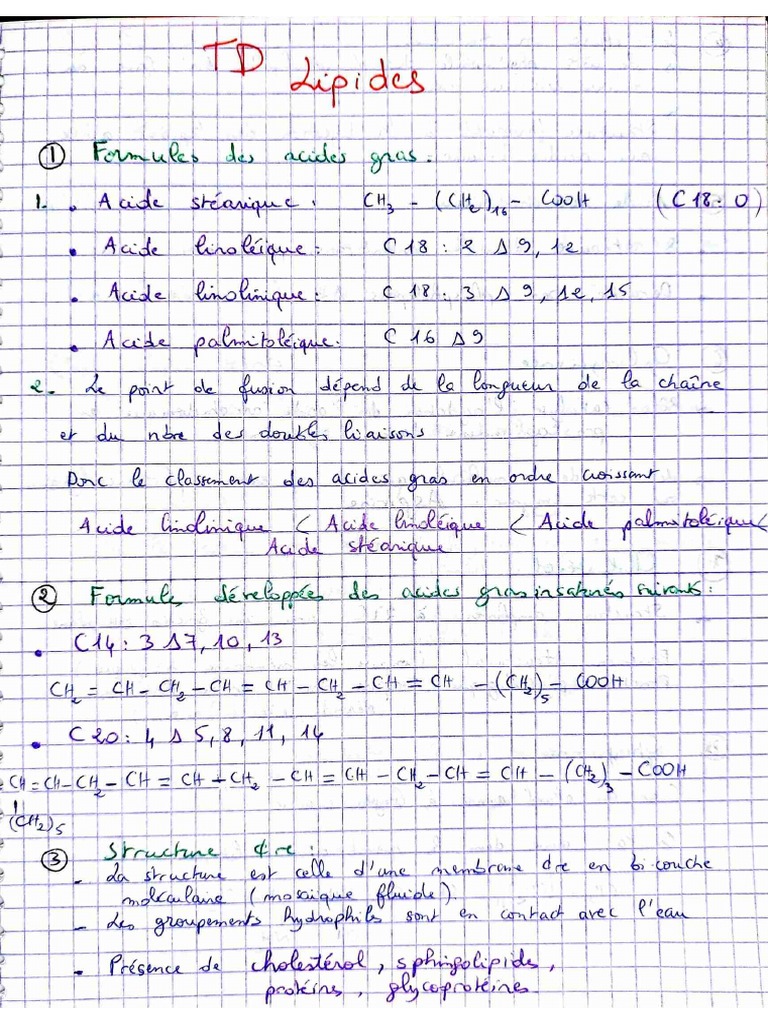 TD
Lipides
① Formules des acides gras.
1. • Acide stéarique. CH3 - (CH2)16 - COOH (C18:0)
• Acide linoléique : C18 : 2 Δ9,12
• Acide linolinique : C18 : 3 Δ9,12,15
• Acide palmitoléique. C16 Δ9
2. Le point de fusion dépend de la longueur de la chaîne
et du nbre des doubles liaisons
Donc le classement des acides gras en ordre croissant
Acide linolinique < Acide linoléique < Acide palmitoléique <
Acide stéarique
② Formules développées des acides gras insaturés suivants :
• C14 : 3 Δ7, 10, 13
CH2 = CH - CH2 - CH = CH - CH2 - CH = CH - (CH2)5 - COOH
• C20 : 4 Δ 5, 8, 11, 14
CH = CH - CH2 - CH = CH - CH2 - CH = CH - CH2 - CH = CH - (CH2)3 - COOH
(CH2)5
③ Structure :
- La structure est celle d'une membrane en bi couche
moléculaire (mosaïque fluide).
- Les groupements hydrophils sont en contact avec l'eau
- Présence de cholestérol, sphingolipids,
protéins, glycoprotéines